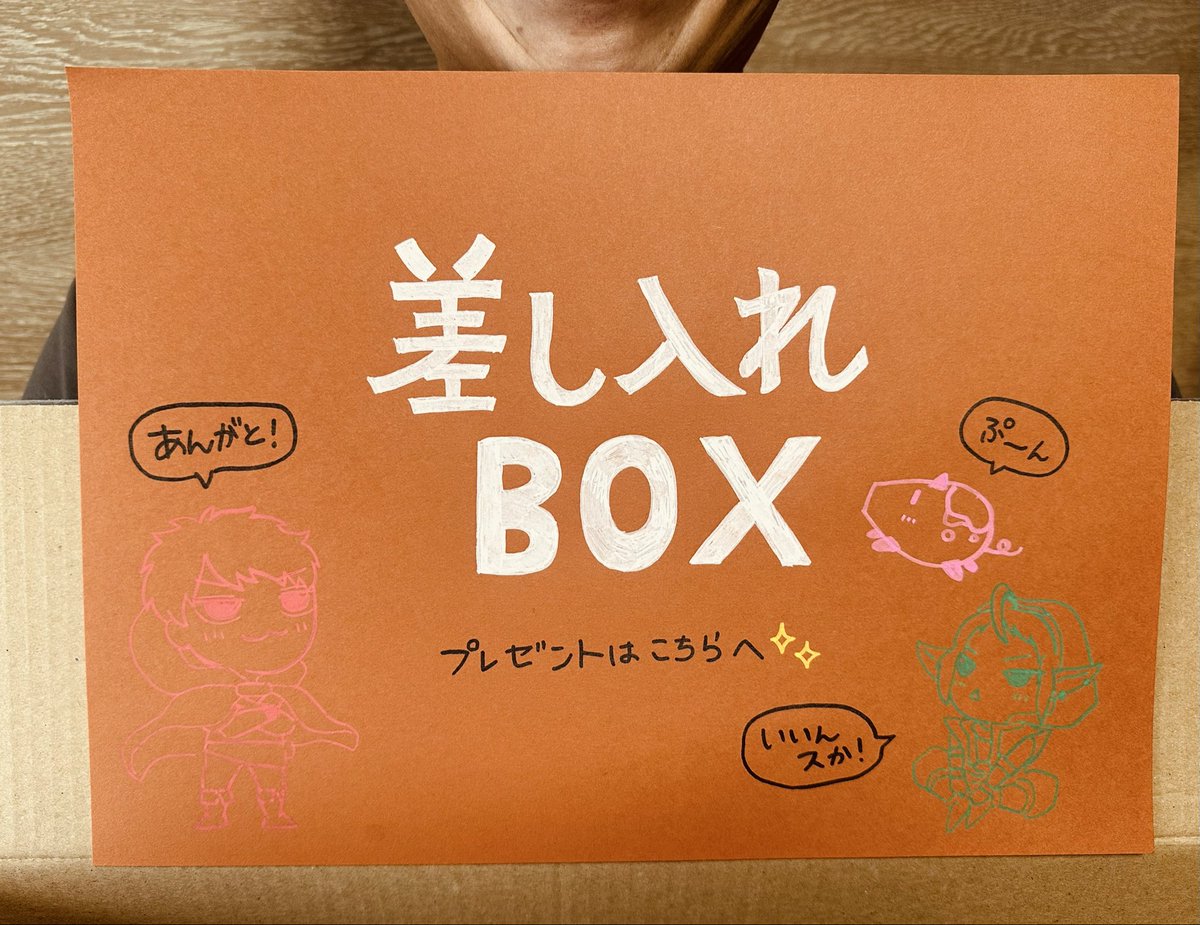 差し入れ
BOX
あんがと!
ぷーん
プレゼントはこちらへ
いいん
スか!